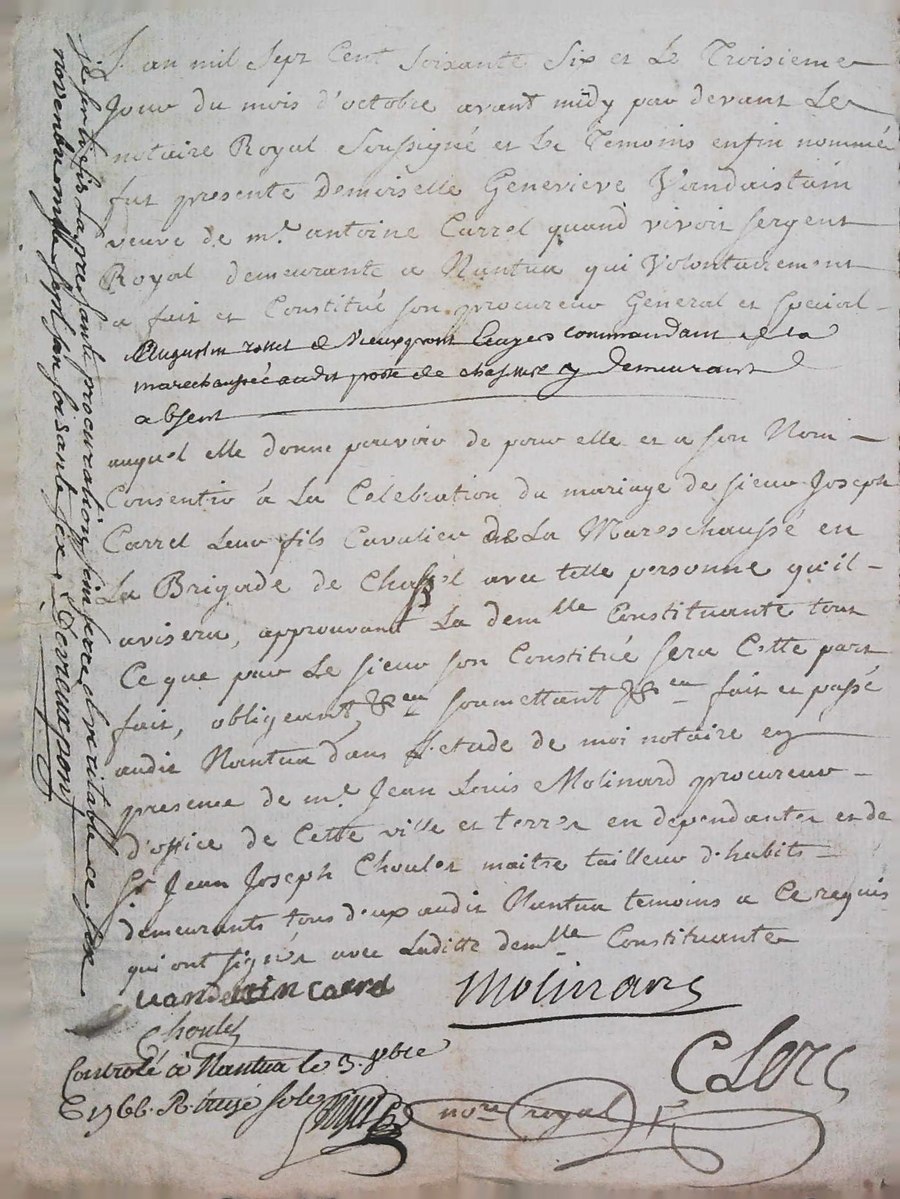 L'an mil Sept Cent soixante Six et Le Troisieme
Jour du mois d'octobre avant midy par devant Le
notaire Royal Soussigné et Le Temoins enfin nommé
fut presente Demoiselle Genevieve Vandaistain
veuve de mr. antoine Carrel quand vivoit sergent
Royal demeurante a Nantua qui Volontairement
a fait et Constitué son procureur General et special
Augustin de Vieuxpont Ecuyer commandant de la
marechaussée audit poste de y demeurant
absent
auquel elle donne pouvoir de pour elle et a son Nom
Consentir à La Celebration du mariage de sieur Joseph
Carrel Leur fils Cavalier de La Mareschaussé en
La Brigade de avec telle personne qu'il
avisera, approuvant La demlle Constituante tout
Ce que par Le sieur son Constitué sera Cette part
fait, obligeant, &en soumettant &en fait et passé
audit Nantua dans L'etude de moi notaire en
presence de mr. Jean Louis Molinard procureur
d'office de Cette ville et terres en dependantes et de
Sr Jean Joseph Choules maitre tailleur d'habits
demeurants tous deux audit Nantua temoins a Ce requis
qui ont signés avec Laditte demlle Constituante
Carrel
Molinard
Choules
Controlé à Nantua le 3. 8bre
1766. R. treize sols
CLerc
nore royal
je sertifis la presante procuration sinsere et veritable ce six
novembre mille sept san soisante six. Devieuxpont